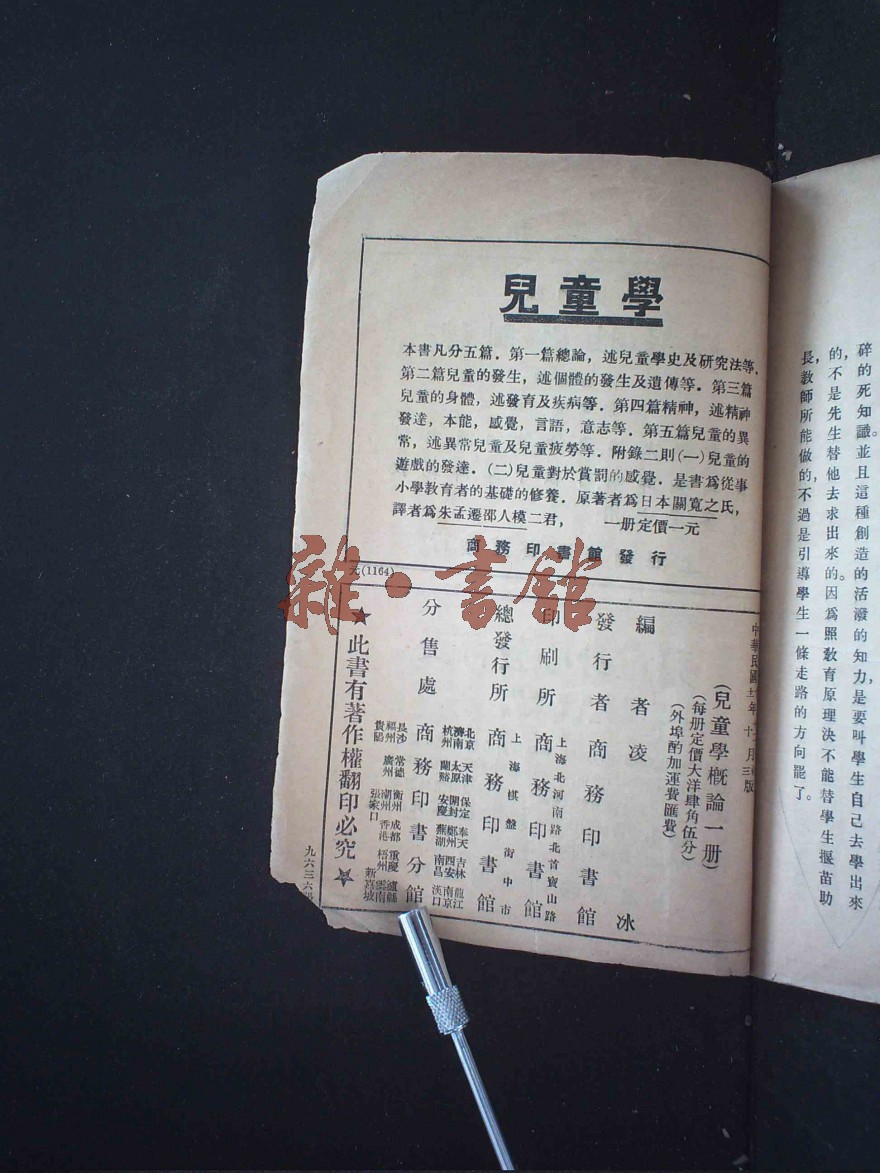 碎的死知識。並且這種創造的活潑的知力，是要叫學生自己去學出來
的，不是先生替他去求出來的。因爲照教育原理決不能替學生揠苗助
長，教師所能做的，不過是引導學生一條走路的方向罷了。
兒童學
本書凡分五篇．第一篇總論，述兒童學史及研究法等．
第二篇兒童的發生，述個體的發生及遺傳等．第三篇
兒童的身體，述發育及疾病等．第四篇精神，述精神
發達，本能，感覺，言語，意志等．第五篇兒童的異
常，述異常兒童及兒童疲勞等．附錄二則(一)兒童的
遊戲的發達．(二)兒童對於賞罰的感覺．是書爲從事
小學教育者的基礎的修養．原著者爲日本關寬之氏，
譯者爲朱孟遷邵人模二君，　一册定價一元
商務印書館發行
元(1164)
中華民國 年 十 月三版
(兒童學概論一册)
(每册定價大洋肆角伍分)
(外埠酌加運費匯費)
編者 凌冰
發行者 商務印書館
印刷所 上海北河南路北首寶山路 商務印書館
總發行所 上海棋盤街中市 商務印書館
分售處 商務印書分館
北京 天津 保定 奉天 吉林 龍江
濟南 太原 開封 鄭州 西安 南京
杭州 蘭谿 安慶 蕪湖 南昌 漢口
長沙 常德 衡州 成都 重慶 瀘縣
福州 廣州 潮州 香港 梧州 雲南
貴陽 張家口 新嘉坡
★此書有著作權翻印必究★
九六三六
雜·書館